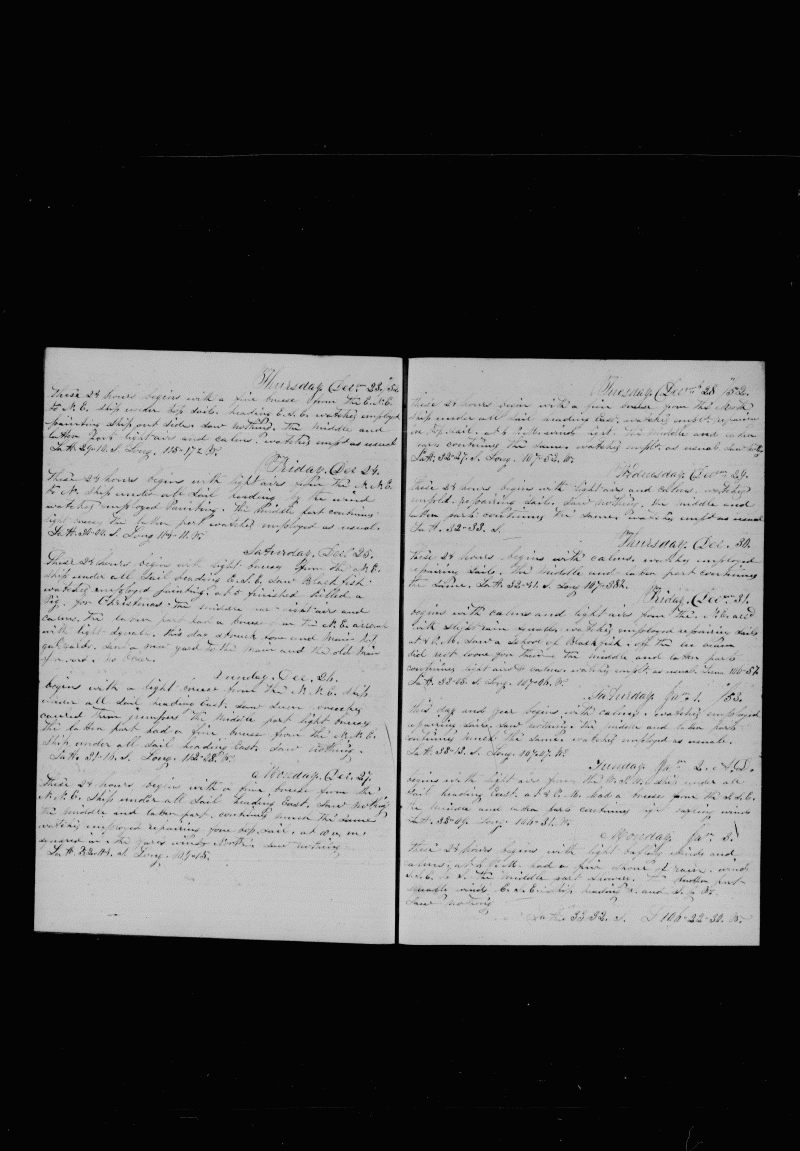 Thursday, Dec 23. 52.
These 24 hours begins with a fine breeze from the E.N.E.
to N.E. Ship under top sails. heading E.S.E. watches employed
painting ship out side. Saw nothing. the middle and
latter part light airs and calms. watches empd as usual
Lat. 29-10. S. Long. 115-17 W.
Friday, Dec 24.
These 24 hours begins with light airs from the N.N.E.
to N. Ship under all sail heading by the wind
watches employed painting. the middle part continues
light breeze the latter part watches employed as usual.
Long 114-11. W.
Saturday, Dec. 25.
These 24 hours begins with light breeze from the N.E.
Ship under all sail heading E.S.E. Saw Blackfish
watches employed painting. at 5 finished killed a
Pig. for Christmas the middle light airs and
calms. the latern part had a breeze from the N.E.
with light squals. this day struck down and Main
yards. Sent a new yard to the main and the old Main
Sunday, Dec. 26.
begins with a light breeze from the N.N.E. Ship
under all sail heading East. Saw
called them jumpers the middle part light breeze
the latern part had a fine breeze from the N.N.E.
Ship under all sail heading East. Saw nothing.
Lat. 31-16. S. Long. 112-28. W.
Monday, Dec. 27.
These 24 hours begin with a fine breeze from the
N.N.E. Ship under all sail heading East. Saw nothing
the middle and latern part, continues much the same
watches employed repairing fore topsail. at
squared in the yards wind North. Saw nothing
S. Long. 109-15.
Tuesday, Dec 28 52.
These 24 hours begin with a fine breeze from the North
Ship under all sail heading East, watches empl. repairing
topsail. at 6 P.M. wind light. the middle and latern
parts continues the same. watches empl. as usual. Saw nothing
Lat. 32-27. S. Long. 107-52. W.
Wednesday, Dec 29.
these 24 hours begins with light airs and calms. watches
empld. repairing sails. Saw nothing. the middle and
latern part continues the same. watches empd as usual
Lat. 32-33. S.
Thursday, Dec. 30.
These 24 hours begins with calms. watches employed
repairing sails. the middle and latern part continues
the same. Lat. 32-31. S. Long 107-38.
Friday, Dec. 31.
begins with calms and light airs from the N.E. and
with slight rain squalls. watches employed repairing sails
at 4 P.M. Saw a School of Blackfish. off the
did not lower for them. the middle and latern parts
continues light airs & calms. watches empl. as usual.
Lat. 32-25. S. Long. 107-06. W.
Saturday Jan 1. 53.
this day and year begins with calms. watches employed
repairing sails. Saw nothing. the middle and latern part
continues much the same. watches employed as usual.
Lat. 33-13. S. Long. 107-07. W.
Sunday Jan 2. 53.
begins with light air from the Ship under all
sail heading East. at 4 P.M. had a breeze from the S.S.E.
the middle and latern part continues light baffling winds
Lat. 33-09. Long. 106-31. W.
Monday Jan 3.
these 24 hours begins with light baffling winds and
calms, at had a fine shower of rain. wind
S.S.E. to S. the middle part showers. the latern part
squally wind E.S.E. ship heading and S.
Saw nothing
Lat. 33-32. S. L 106-22-30. W.